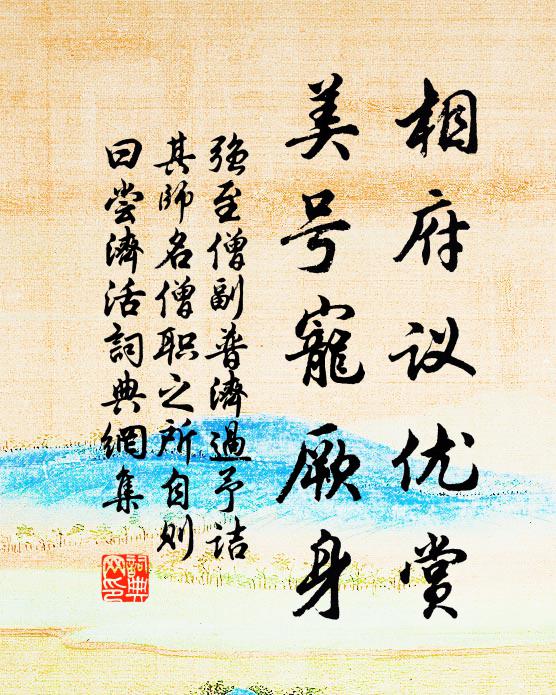 相府议优赏
美号寵厥身
强至僧副普濟過予詰
其师名僧职之所自则
曰尝濟活詞典網集
詞典網印